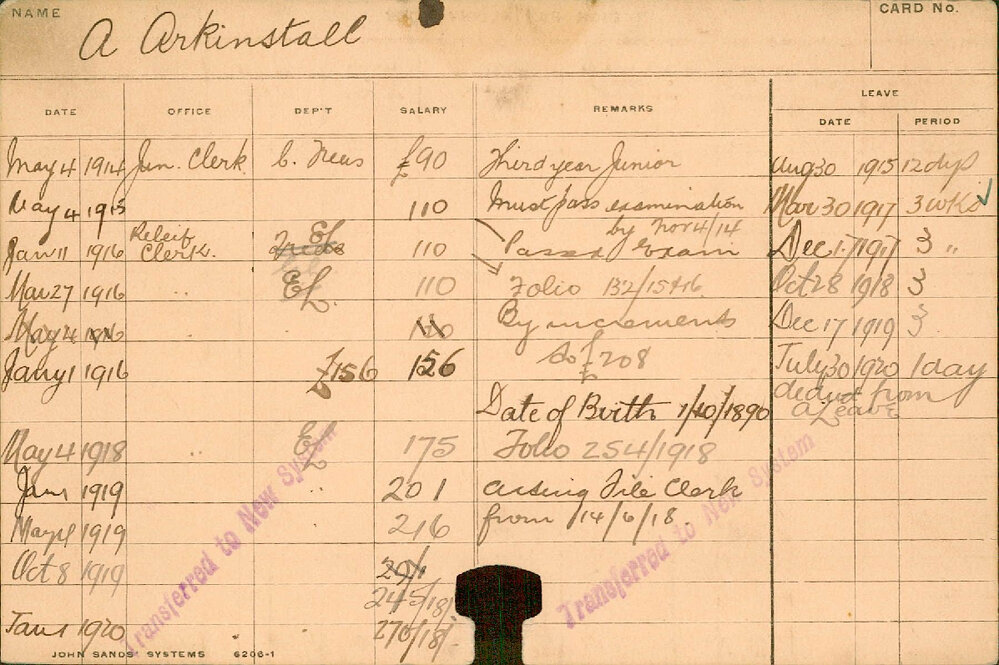 NAME
A Arkinstall
CARD No.
DATE OFFICE DEP'T SALARY REMARKS LEAVE
DATE PERIOD
May 4 1914 Jun. Clerk £90 Third year Junior Aug 30 1915 12 dys
May 4 1915 110 Must pass examination Mar 30 1917 3 wks
by Nov 4/14
Jan 11 1916 Releif Clerk. EL 110 Passed Exam Dec 17 1917 3 "
Mar 27 1916 " EL. 110 Folio 132/15+16 Oct 28 1918 3
May 4 1916 By increments Dec 17 1919 3
Jany 1 1916 £156 156 to £208 July 30 1920 1 day
deduct from
Date of Birth 1/10/1890 a Leave
May 4 1918 EL 175 Folio 254/1918
Jan 1 1919 " 201 Acting File Clerk
May 4 1919 " 216 from 14/6/18.
Oct 8 1919
245/18/.
Jan 1 1920 270/18/.
Transferred to New System
Transferred to New System
JOHN SANDS SYSTEMS 6206-1